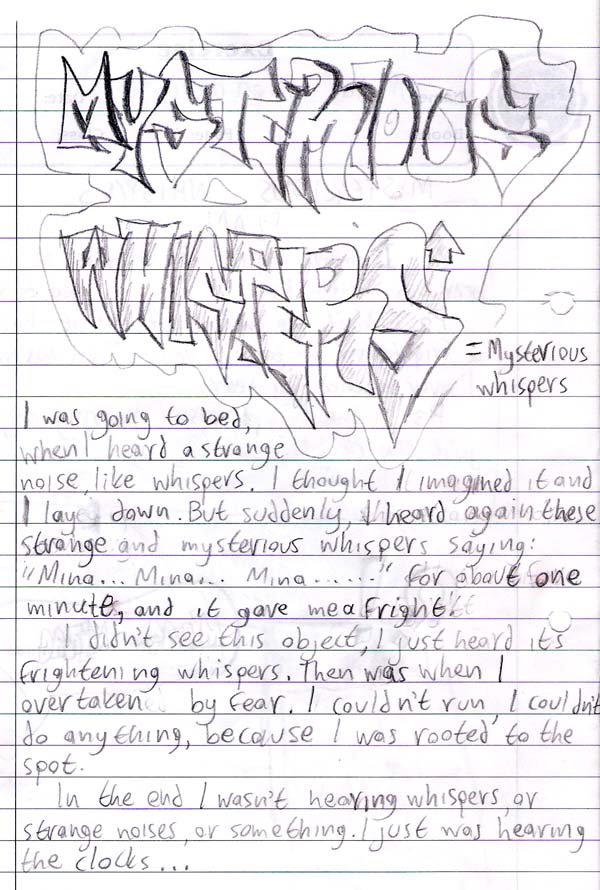 MYSTERIOUS
WHISPERS
= Mysterious
whispers
I was going to bed,
when I heard a strange
noise, like whispers. I thought I imagined it and
I laye down. But suddenly, I heard again these
strange and mysterious whispers saying:
"Mina... Mina... Mina......" for about one
minute, and it gave me a fright
I didn't see this object, I just heard its
frightening whispers. Then was when I
overtaken by fear. I couldn't run, I couldn't
do anything, because I was rooted to the
spot.
In the end I wasn't hearing whispers, or
strange noises, or something. I just was hearing
the clocks...